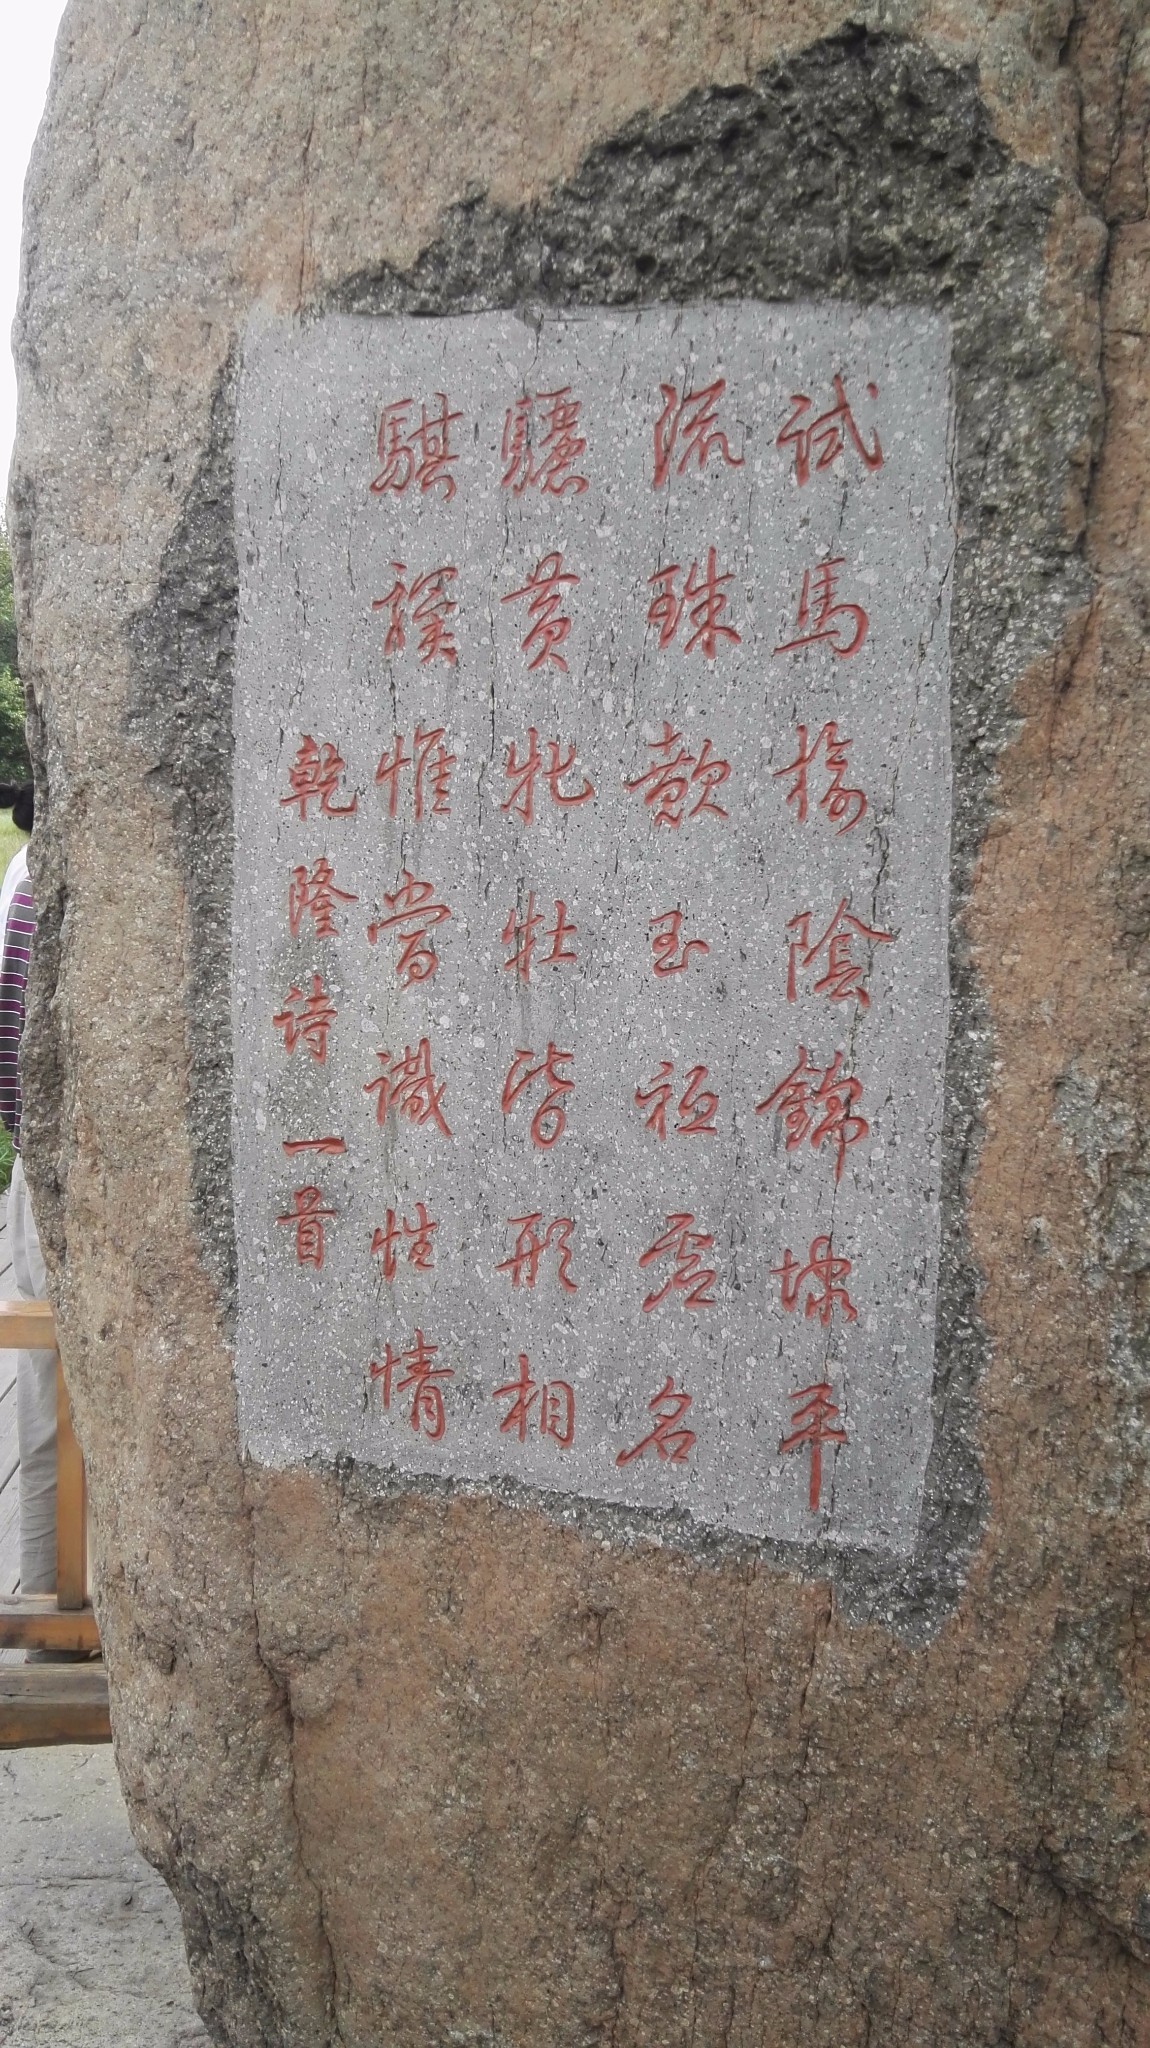 試馬榆陰錦埭平
流珠歕玉祗虛名
驪黃牝牡皆形相
騏惟當識性情
乾隆詩一首